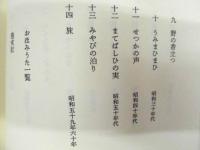 九 野の香立つ
十 うみまひまひ 昭和三十年代
十一 せつかの声 昭和四十年代
十二 まてばしひの実 昭和五十年代
十三 みやびの泊り
十四 旅 昭和五十九年六十年
お住みうた一覧